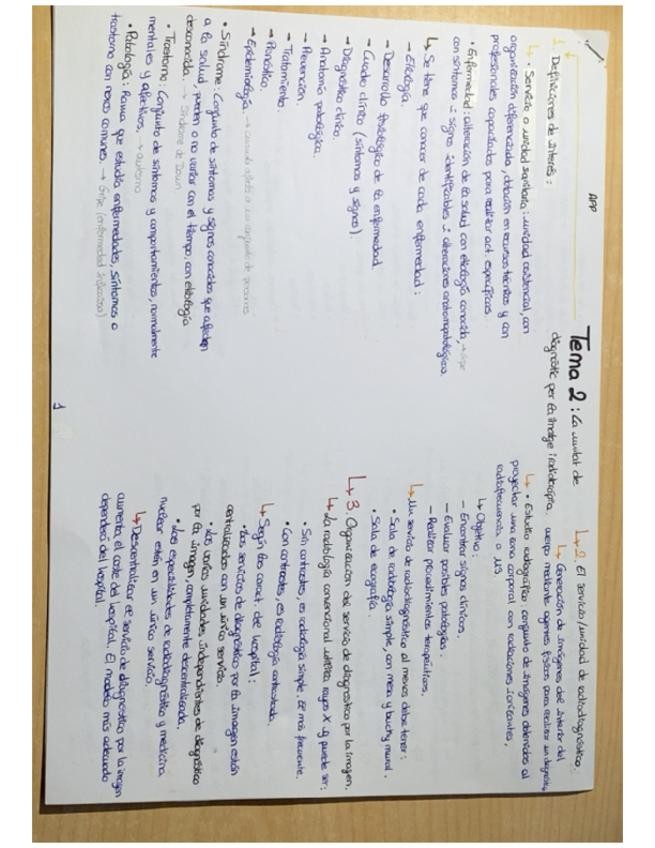 APP
Tema 2: La unitat de
diagnòstic per la imatge i radioteràpia.
1. Definiciones de interés:
↳ • Servicio o unidad sanitaria: unidad asistencial, con
organización diferenciada, dotación en recursos técnicos y con
profesionales capacitados para realizar act. específicas.
• Enfermedad: alteración de la salud con etiología conocida,
con síntomas i signos identificables i alteraciones anatomopatológicas.
↳ Se tiene que conocer de cada enfermedad:
→ Etiología.
→ Desarrollo fisiológico de la enfermedad.
→ Cuadro clínico (síntomas y signos)
→ Diagnóstico clínico.
→ Anatomía patológica.
→ Prevención.
→ Tratamiento.
→ Pronóstico.
→ Epidemiología → cuando afecta a un conjunto de personas
• Síndrome: Conjunto de síntomas y signos conocidos que afecten
a la salud pueden o no variar con el tiempo, con etiología
desconocida. → Síndrome de Down.
• Trastorno: Conjunto de síntomas y comportamientos, normalmente
mentales y afectivos. → autismo
• Patología: Rama que estudia enfermedades, síntomas o
trastorno con rasgos comunes. → Gripe (enfermedad infecciosa)
1
↳ 2. El servicio/unidad de radiodiagnóstico:
↳ Generación de imágenes del interior del
cuerpo mediante agentes físicos para realizar un diagnóstico.
↳ • Estudio radiográfico: conjunto de imágenes obtenidas al
proyectar una zona corporal con radiaciones ionizantes,
radiofrecuencia o US
↳ Objetivo:
— Encontrar signos clínicos.
— Evaluar posibles patologías.
— Realizar procedimientos terapéuticos.
↳ Un servicio de radiodiagnóstico al menos debe tener:
• Sala de radiología simple, con mesa y bucky mural.
• Sala de ecografía.
↳ 3. Organización del servicio de diagnóstico por la imagen.
↳ La radiología convencional utiliza rayos X y puede ser:
• Sin contrastes, es radiología simple. Es más frecuente.
• Con contrastes, es radiología contrastada.
↳ Según los caract. del hospital:
• Los servicios de diagnóstico por la imagen están
centralizados con un único servicio.
• Los varios unidades independientes de diagnóstico
por la imagen, completamente descentralizada.
• Los especialidades de radiodiagnóstico y medicina
nuclear están en un único servicio.
↳ Descentralizar el servicio de diagnóstico por la imagen
aumenta el coste del hospital. El modelo más adecuado
dependerá del hospital.